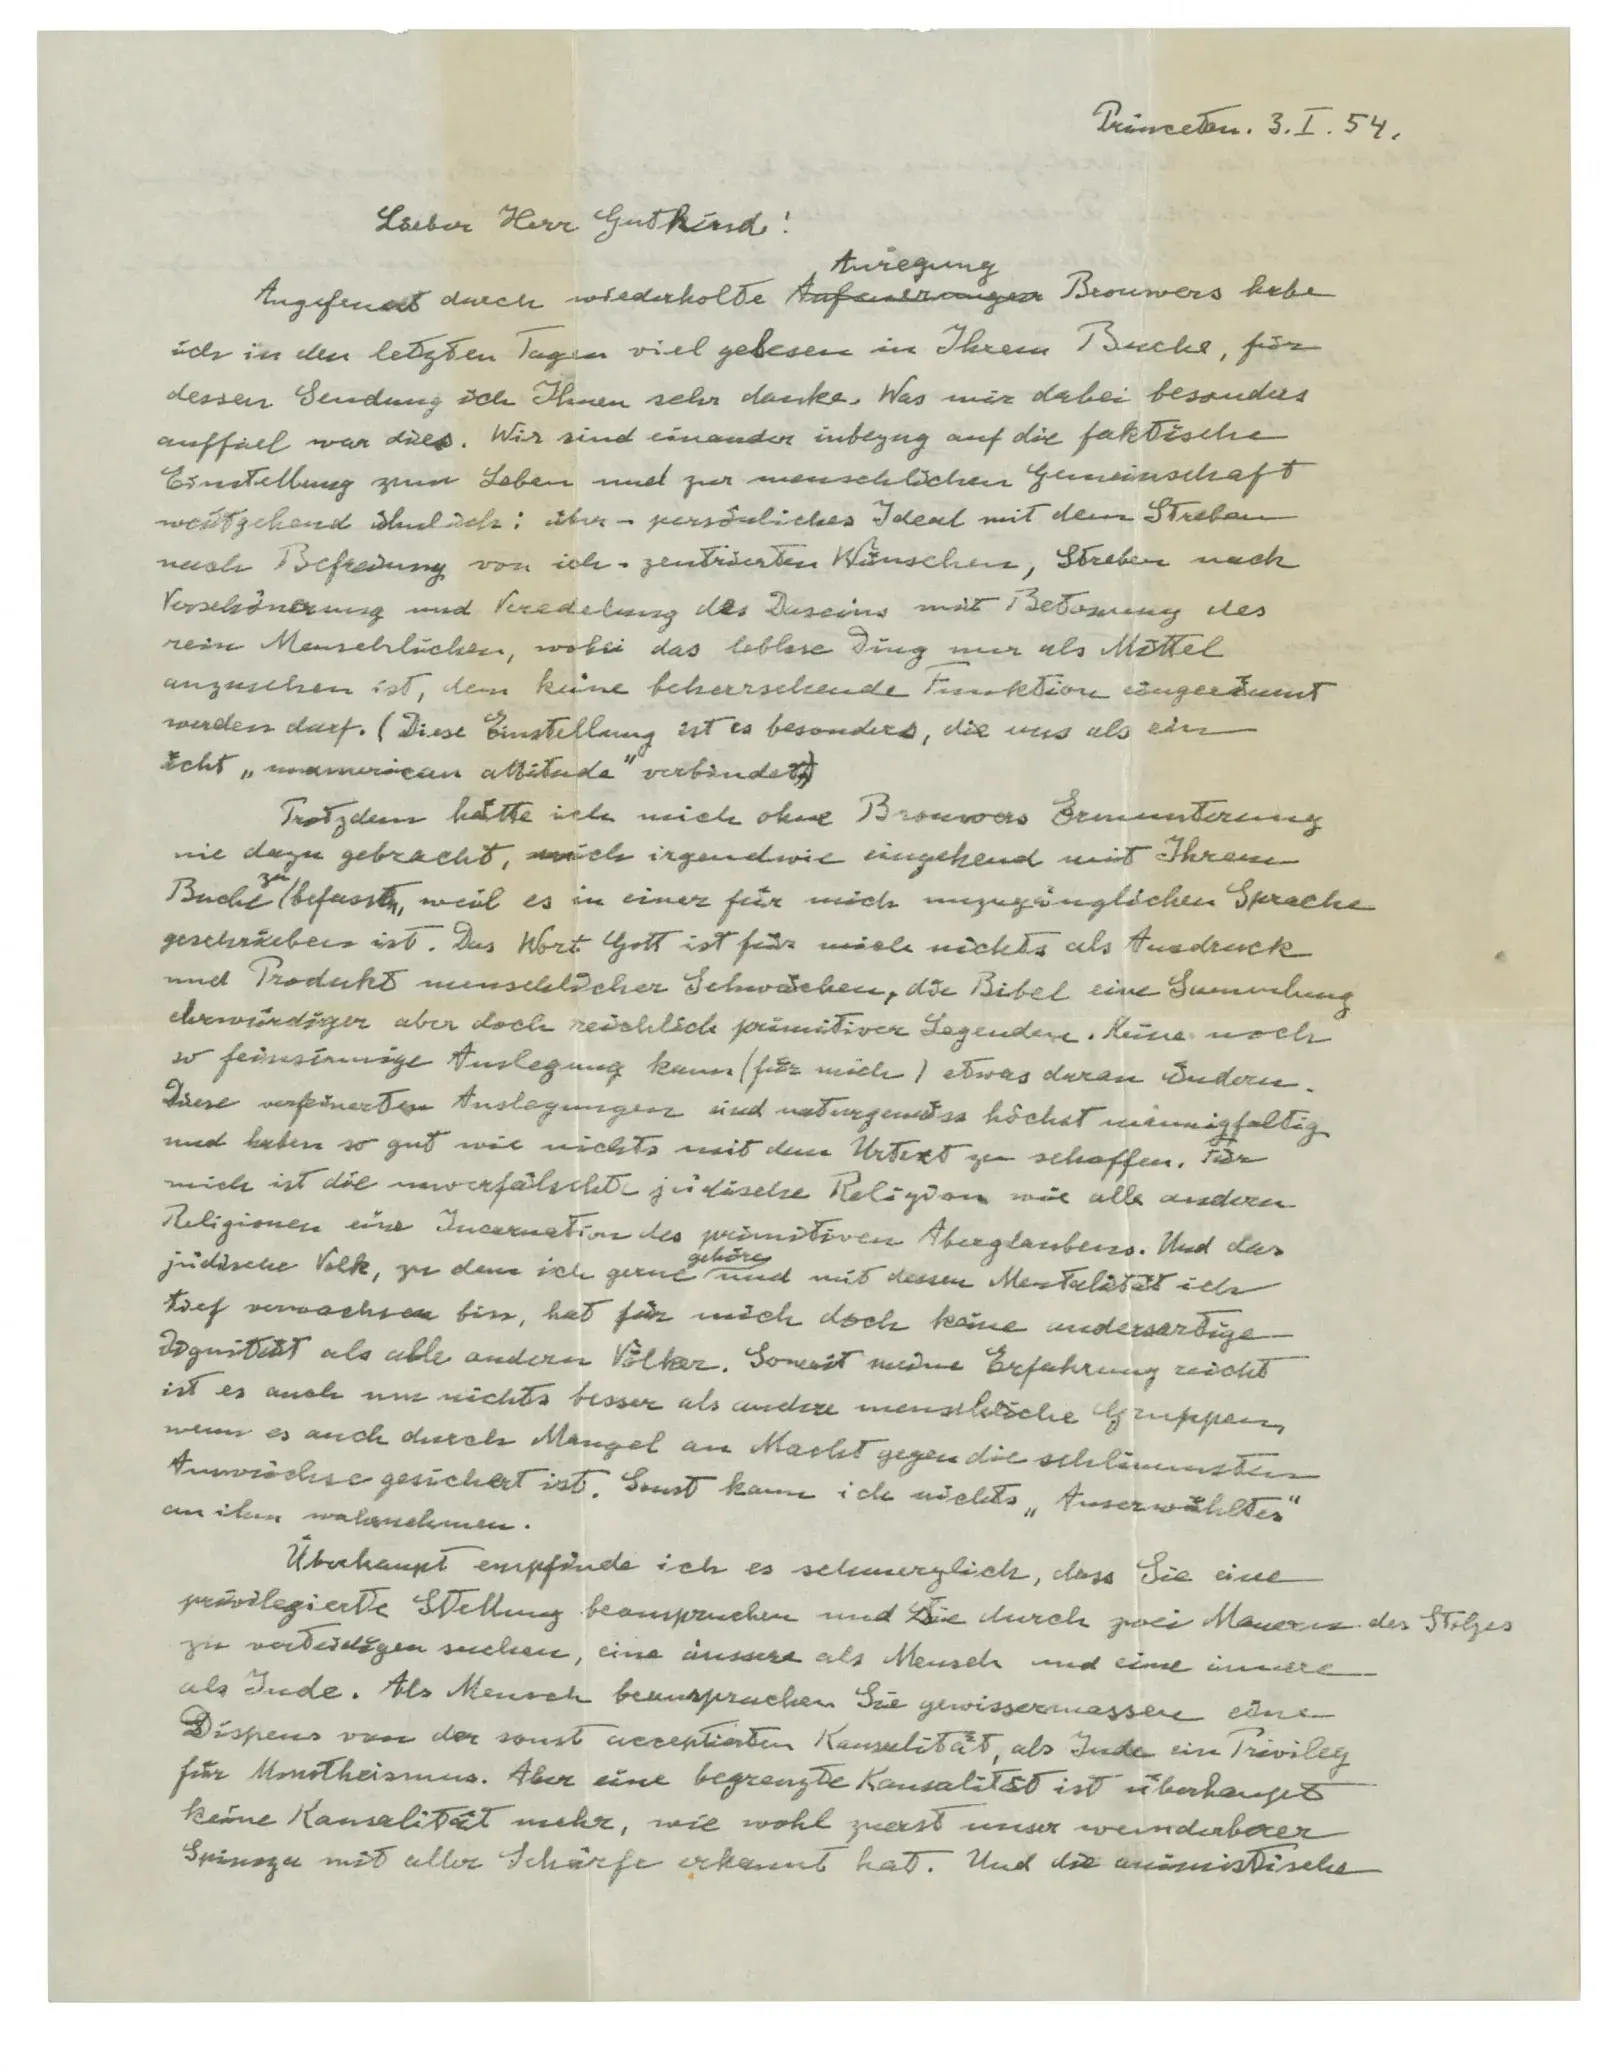 Princeton. 3. I. 54.
Lieber Herr Gutkind!
Anregung
Angefeuert durch wiederholte Anfeuerungen Brouwers habe
ich in den letzten Tagen viel gelesen in Ihrem Buche, für
dessen Sendung ich Ihnen sehr danke. Was mir dabei besonders
auffiel war dies. Wir sind einander inbezug auf die faktische
Einstellung zum Leben und zur menschlichen Gemeinschaft
weitgehend ähnlich: über-persönliches Ideal mit dem Streben
nach Befreiung von ich-zentrierten Wünschen, Streben nach
Verschönerung und Veredelung des Daseins mit Betonung des
rein Menschlichen, wobei das leblose Ding nur als Mittel
anzusehen ist, dem keine beherrschende Funktion eingeräumt
werden darf. (Diese Einstellung ist es besonders, die uns als ein
echt „unamerican attitude" verbindet.)
Trotzdem hätte ich mich ohne Brouwers Ermunterung
nie dazu gebracht, mich irgendwie eingehend mit Ihrem
Buche zu befassen, weil es in einer für mich unzugänglichen Sprache
geschrieben ist. Das Wort Gott ist für mich nichts als Ausdruck
und Produkt menschlicher Schwächen, die Bibel eine Sammlung
ehrwürdiger aber doch reichlich primitiver Legenden. Keine noch
so feinsinnige Auslegung kann (für mich) etwas daran ändern.
Diese verfeinerten Auslegungen sind naturgemäss höchst mannigfaltig
und haben so gut wie nichts mit dem Urtext zu schaffen. Für
mich ist die unverfälschte jüdische Religion wie alle andern
Religionen eine Incarnation des primitiven Aberglaubens. Und das
jüdische Volk, zu dem ich gerne gehöre und mit dessen Mentalität ich
tief verwachsen bin, hat für mich doch keine andersartige
Dignität als alle andern Völker. Soweit meine Erfahrung reicht
ist es auch um nichts besser als andere menschliche Gruppen,
wenn es auch durch Mangel an Macht gegen die schlimmsten
Auswüchse gesichert ist. Sonst kann ich nichts „Auserwähltes"
an ihm wahrnehmen.
Überhaupt empfinde ich es schmerzlich, dass Sie eine
privilegierte Stellung beanspruchen und Sie durch zwei Mauern des Stolzes
zu verteidigen suchen, eine äussere als Mensch und eine innere
als Jude. Als Mensch beanspruchen Sie gewissermassen eine
Dispens von der sonst acceptierten Kausalität, als Jude ein Privileg
für Monotheismus. Aber eine begrenzte Kausalität ist überhaupt
keine Kausalität mehr, wie wohl zuerst unser wunderbarer
Spinoza mit aller Schärfe erkannt hat. Und die animistische